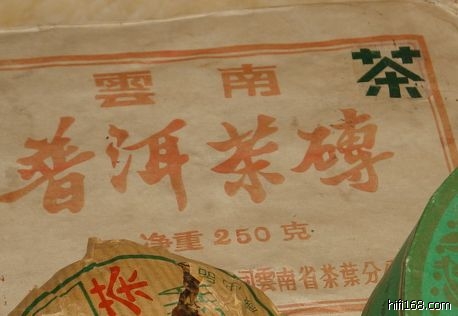 雲南
茶
普洱茶磚
净重250克
司雲南省茶葉分
茶
hifi168.com